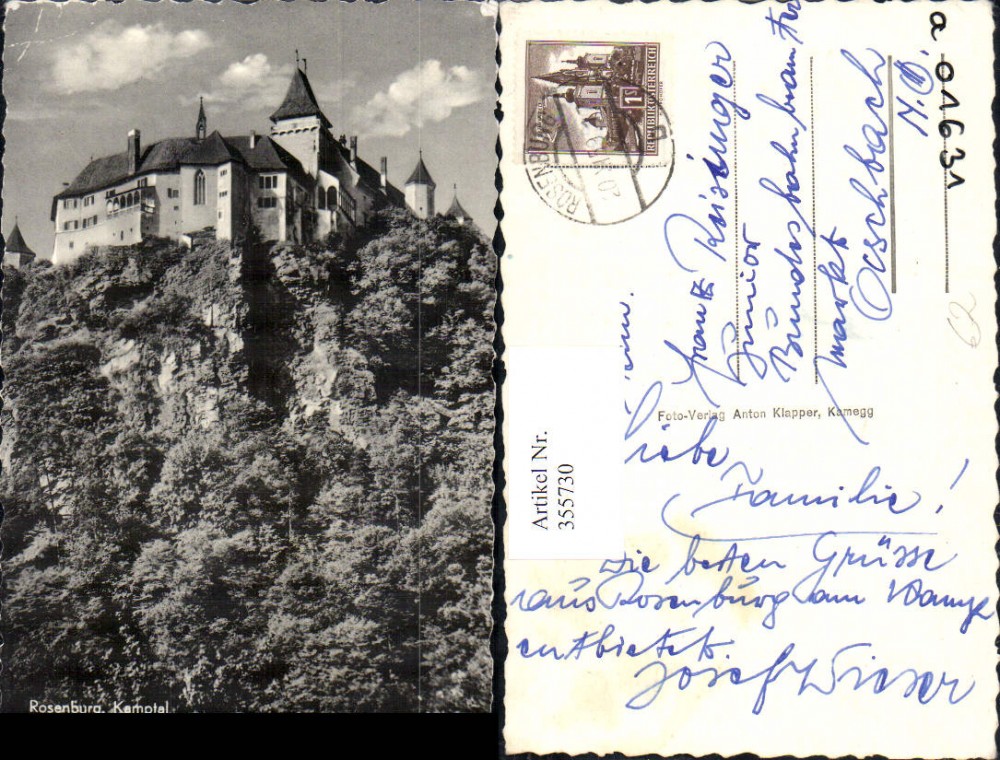 Rosenburg, Kamptal
1S
REPUBLIK ÖSTERREICH
ROSENBURG
Franz Reisinger
Junior
Bundesbahnbeamter
Markt
Aschbach
N.Ö.
a 01631
62
Foto-Verlag Anton Klapper, Kamegg
Artikel Nr.
355730
Liebe
Familie!
Die besten Grüsse
aus Rosenburg am Kamp
entbietet
Josef Wieser